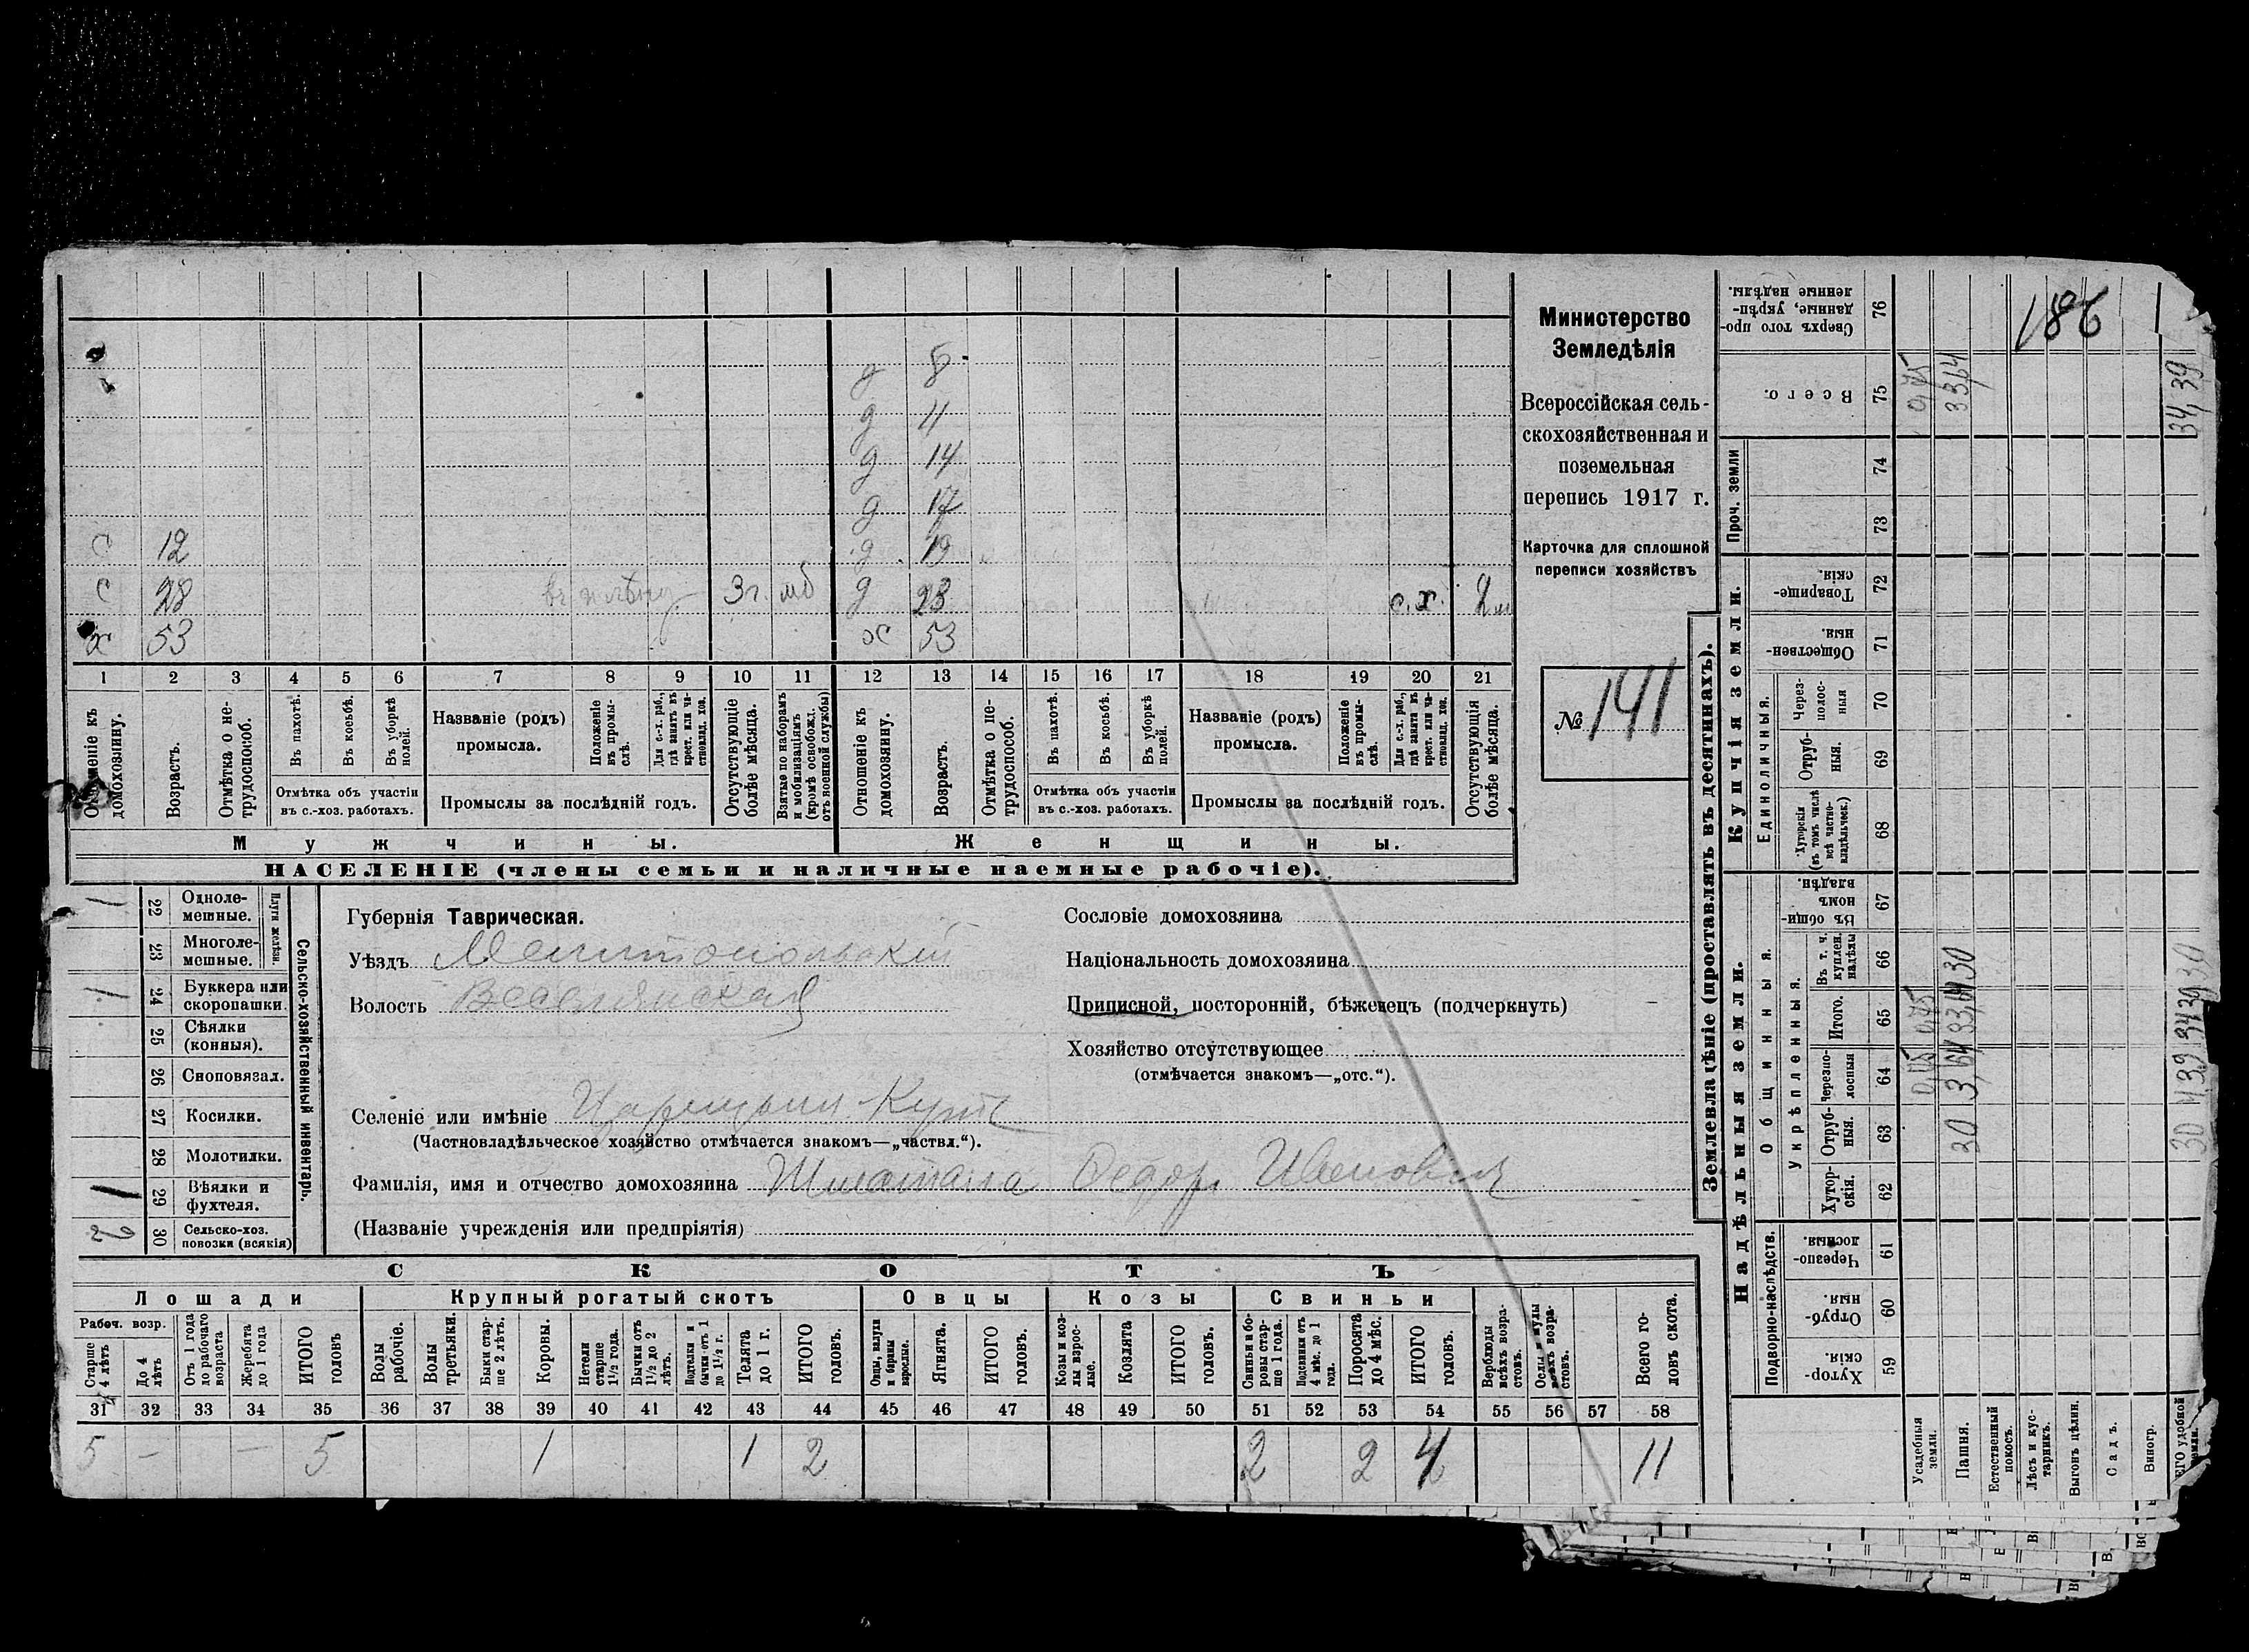 Министерство
Земледѣлія
Всероссійская сель-
скохозяйственная и
поземельная
перепись 1917 г.
Карточка для сплошной
переписи хозяйствъ
№ 141
186
д 8
д 11
д 14
д 17
с 12 д 19
с 28 въ плѣну 3 г. мб д 23 с.х.
х 53 х 53
1 2 3 4 5 6 7 8 9 10 11 12 13 14 15 16 17 18 19 20 21
Отношеніе къ домохозяину.
Возрастъ.
Отмѣтка о не-трудоспособ.
Въ пахотѣ.
Въ косьбѣ.
Въ уборкѣ полей.
Отмѣтка объ участіи въ с.-хоз. работахъ.
Названіе (родъ) промысла.
Положеніе въ промы-слѣ.
Для с.-х. раб., гдѣ занятъ въ крест. или ча-стновлад. хоз.
Промыслы за послѣдній годъ.
Отсутствующіе болѣе мѣсяца.
Взятые по наборамъ и мобилизаціямъ (кромѣ освобожд. отъ военной службы)
Отношеніе къ домохозяину.
Возрастъ.
Отмѣтка о не-трудоспособ.
Въ пахотѣ.
Въ косьбѣ.
Въ уборкѣ полей.
Отмѣтка объ участіи въ с.-хоз. работахъ.
Названіе (родъ) промысла.
Положеніе въ промы-слѣ.
Для с.-х. раб., гдѣ заняти въ крест. или ча-стновлад. хоз.
Промыслы за послѣдній годъ.
Отсутствующія болѣе мѣсяца.
Мужчины. Женщины.
НАСЕЛЕНІЕ (члены семьи и наличные наемные рабочіе).
Сельско-хозяйственный инвентарь.
Плуги желѣзн.
1 22 Одноле-мешные.
23 Многоле-мешные.
1 24 Буккера или скоропашки.
25 Сѣялки (конныя).
26 Сноповязал.
27 Косилки.
28 Молотилки.
1 29 Вѣялки и фухтеля.
2 30 Сельско-хоз. повозки (всякія)
Губернія Таврическая.
Уѣздъ Мелитопольскій
Волость Веселянская
Селеніе или имѣніе Царицынъ Кутъ
(Частновладѣльческое хозяйство отмѣчается знакомъ—„частвл.“).
Фамилія, имя и отчество домохозяина Федоръ Ивановичъ
(Названіе учрежденія или предпріятія)
Сословіе домохозяина
Національность домохозяина
Приписной, посторонній, бѣженецъ (подчеркнуть)
Хозяйство отсутствующее
(отмѣчается знакомъ—„отс.“).
СКОТЪ
Лошади Крупный рогатый скотъ Овцы Козы Свиньи
Рабоч. возр.
Старше 4 лѣтъ
До 4 лѣтъ
Отъ 1 года до рабочаго возраста
Жеребята до 1 года
ИТОГО головъ
Волы рабочіе.
Волы третьяки.
Быки стар-ше 2 лѣтъ.
Коровы.
Нетели старше 1½ года.
Бычки отъ 1½ до 2 лѣтъ.
Подтелки и бычки отъ 1 до 1½ г.
Телята до 1 г.
ИТОГО головъ.
Овцы, валухи и бараны взрослые.
Ягнята.
ИТОГО головъ.
Козы и коз-лы взрос-лые.
Козлята
ИТОГО головъ.
Свиньи и бо-ровы стар-ше 1 года.
Подсвинки отъ 4 мѣс. до 1 года.
Поросята до 4 мѣс.
ИТОГО головъ.
Верблюды всѣхъ возра-стовъ.
Ослы и мулы всѣхъ возра-стовъ.
Всего го-ловъ скота.
31 32 33 34 35 36 37 38 39 40 41 42 43 44 45 46 47 48 49 50 51 52 53 54 55 56 57 58
5 — — 5 1 1 2 2 2 4 11
Землевладѣніе (проставлять въ десятинахъ).
Надѣльныя земли. Купчія земли. Проч. земли
Подворно-наслѣдств.
Общинныя.
Укрѣпленныя.
Единоличныя.
Хутор-скія. 59
Отруб-ныя. 60
Черезпо-лосныя. 61
Хутор-скія. 62
Отруб-ныя. 63
Черезпо-лосныя 64
Итого. 65
Въ т. ч. куплен. надѣлы 66
Въ общи-номъ владѣн. 67
Хуторскія (въ томъ числѣ всѣ частно-владѣльческ.) 68
Отруб-ныя. 69
Через-полос-ныя 70
Обществен-ныя. 71
Товарище-скія. 72
73
74
Всего. 75
Сверхъ того про-данные, укрѣп-ленные надѣлы. 76
Усадебныя земли. 0,75 0,75 0,75
Пашня. 30 3,64 33,64 30 33,64
Естественный покосъ.
Лѣсъ и кус-тарникъ.
Выгонъ цѣлин.
Садъ.
Виногр.
ЕГО удобной земли. 30 4,39 34,39 30 34,39